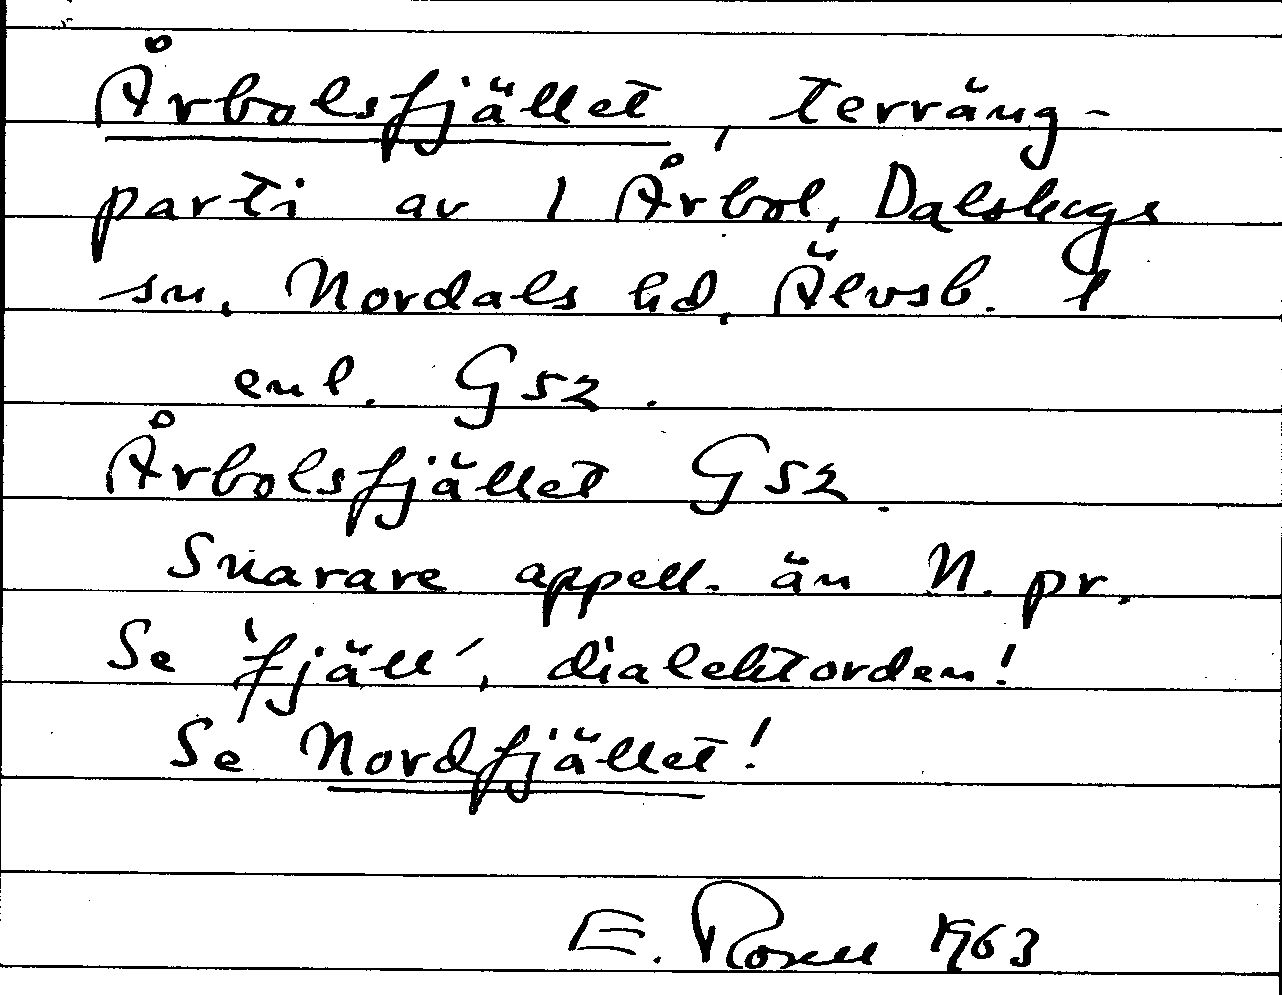 Årbolsfjället, terräng-
parti av 1 Årbol, Dalskogs
sn, Nordals hd, Älvsb. l
enl. G52.
Årbolsfjället G52.
Snarare appell. än N. pr.
Se 'fjäll', dialektorden!
Se Nordfjället!
E. Rosell 1963